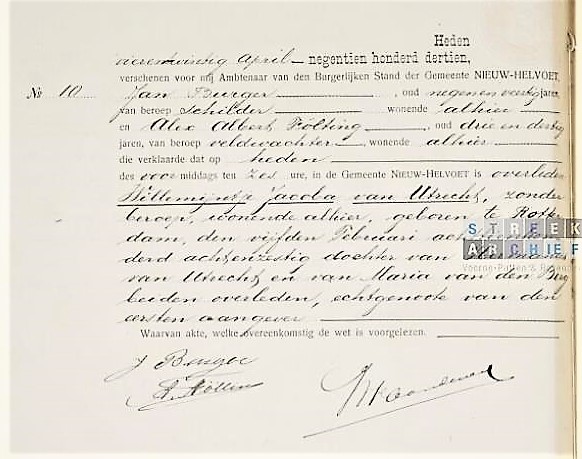 Heden
vierentwintig April — negentien honderd dertien,
verschenen voor mij Ambtenaar van den Burgerlijken Stand der Gemeente NIEUW-HELVOET,
No 10 Jan Burger, oud negenenveertig jaren,
van beroep schilder wonende alhier
en Alex Albert Fölting, oud drie en dertig
jaren, van beroep veldwachter, wonende alhier
die verklaarde dat op heden
des voormiddags ten zes ure, in de Gemeente NIEUW-HELVOET is overleden
Willemijntje Jacoba van Utrecht, zonder
beroep, wonende alhier, geboren te Rotter
dam, den vijfden Februari achttienhon
derd achtenzestig dochter van
van Utrecht en van Maria van den Berg
beiden overleden, echtgenoote van den
eersten aangever
Waarvan akte, welke overeenkomstig de wet is voorgelezen.
J Burger
STREEK
ARCHIEF
Voorne-Putten & Rozenburg